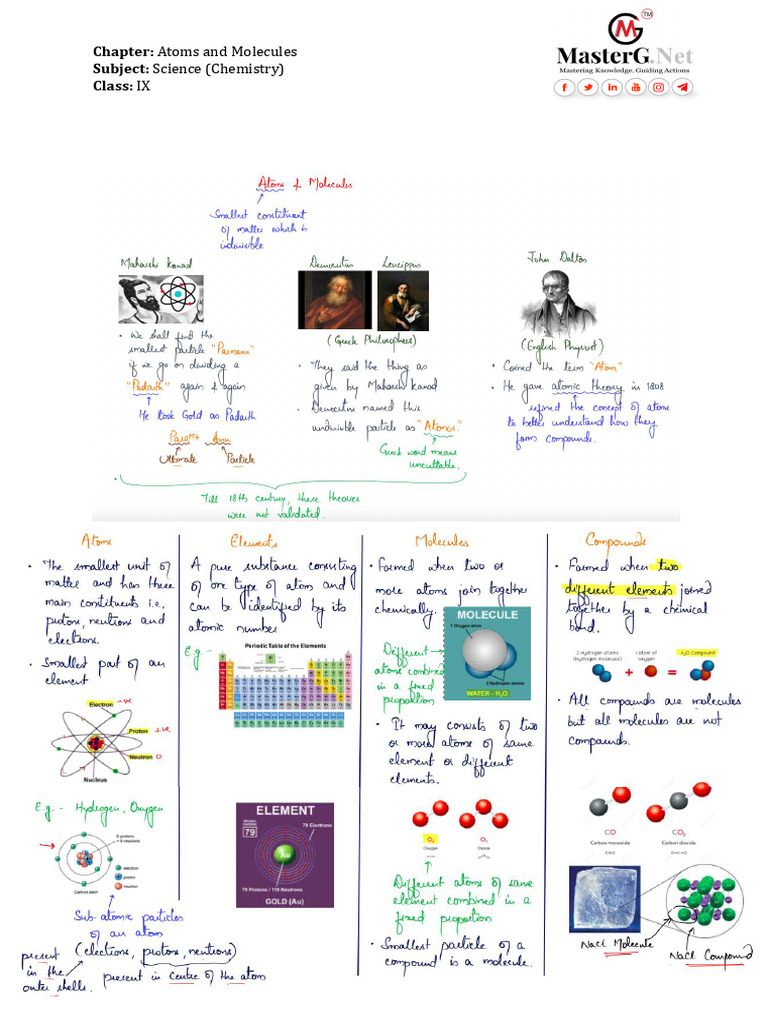 Chapter: Atoms and Molecules
Subject: Science (Chemistry)
Class: IX
TM
MasterG.Net
Mastering Knowledge, Guiding Actions
Atoms & Molecules
Smallest constituent
of matter which is
indivisible
Maharshi Kanad
• We shall find the
smallest particle "Parmanu"
if we go on dividing a
"Padarth" again & again
He took Gold as Padarth
Param + Anu
Ultimate Particle
Democritus Leucippus
(Greek Philosophers)
• They said the thing as
given by Maharshi Kanad
• Democritus named this
indivisible particle as "Atomos"
Greek word means
uncuttable.
John Dalton
(English Physicist)
• Coined the term "Atom"
• He gave atomic theory in 1808
refined the concept of atoms
to better understand how they
form compounds.
Till 18th century, these theories
were not validated.
Atoms
• The smallest unit of
matter and has three
main constituents i.e.,
protons, neutrons and
electrons.
• Smallest part of an
element
Electron -ve
Proton +ve
Neutron 0
Nucleus
E.g. - Hydrogen, Oxygen
6 protons
+ 6 neutrons
electron
proton
neutron
Carbon atom
Sub-atomic particles
of an atom
(electrons, protons, neutrons)
present
in the
outer shells.
present in centre of the atom
Elements
A pure substance consisting
of one type of atom and
can be identified by its
atomic number
E.g -
Periodic Table of the Elements
ELEMENT
Atomic
number
79
79 Electrons
Au
79 Protons / 118 Neutrons
GOLD (Au)
Molecules
• Formed when two or
more atoms join together
chemically.
MOLECULE
1 Oxygen atom
2 Hydrogen atoms
WATER - H₂O
Different
atoms combined
in a fixed
proportion
• It may consists of two
or more atoms of same
element or different
elements.
O₂
Oxygen
O₃
Ozone
Different atoms of same
element combined in a
fixed proportion
• Smallest particle of a
compound is a molecule.
Compounds
• Formed when two
different elements joined
together by a chemical
bond.
2 Hydrogen atoms
(Hydrogen molecule)
1 atom of
oxygen
H₂O Compound
+ =
• All compounds are molecules
but all molecules are not
compounds.
CO
Carbon monoxide
C≡O
CO₂
Carbon dioxide
O=C=O
NaCl Molecule
NaCl Compound